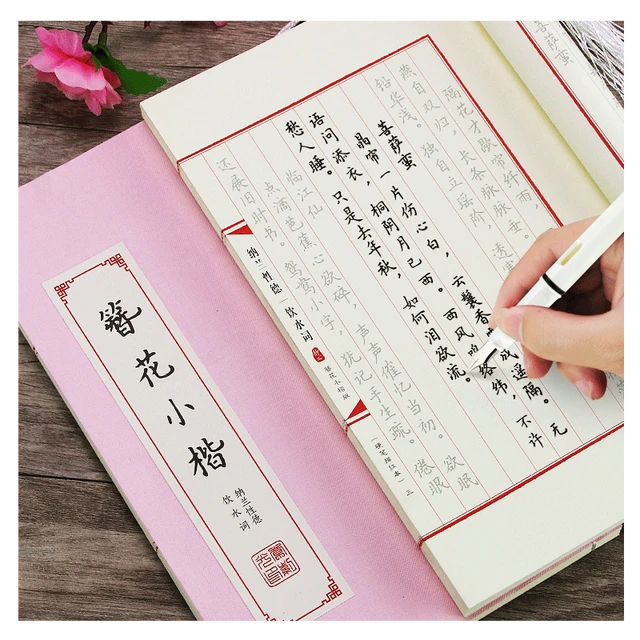 菩萨蛮
隔花才歇帘纤雨，
燕自双归，长条脉脉垂。
铅华浅。独自立瑶阶，透寒
菩萨蛮
晶帘一片伤心白，云鬟香成遥隔。无
语问添衣，桐阴月已西。西风鸣络纬，不许
愁人睡。只是去年秋，如何泪欲流。
临江仙
点滴芭蕉心欲碎，声声催忆当初。欲眠
还展旧时书。鸳鸯小字，犹记手生疏。倦眼
纳兰性德|饮水词
簪花小楷版
（硬笔描红本）
三
簪花小楷
纳兰性德
饮水词